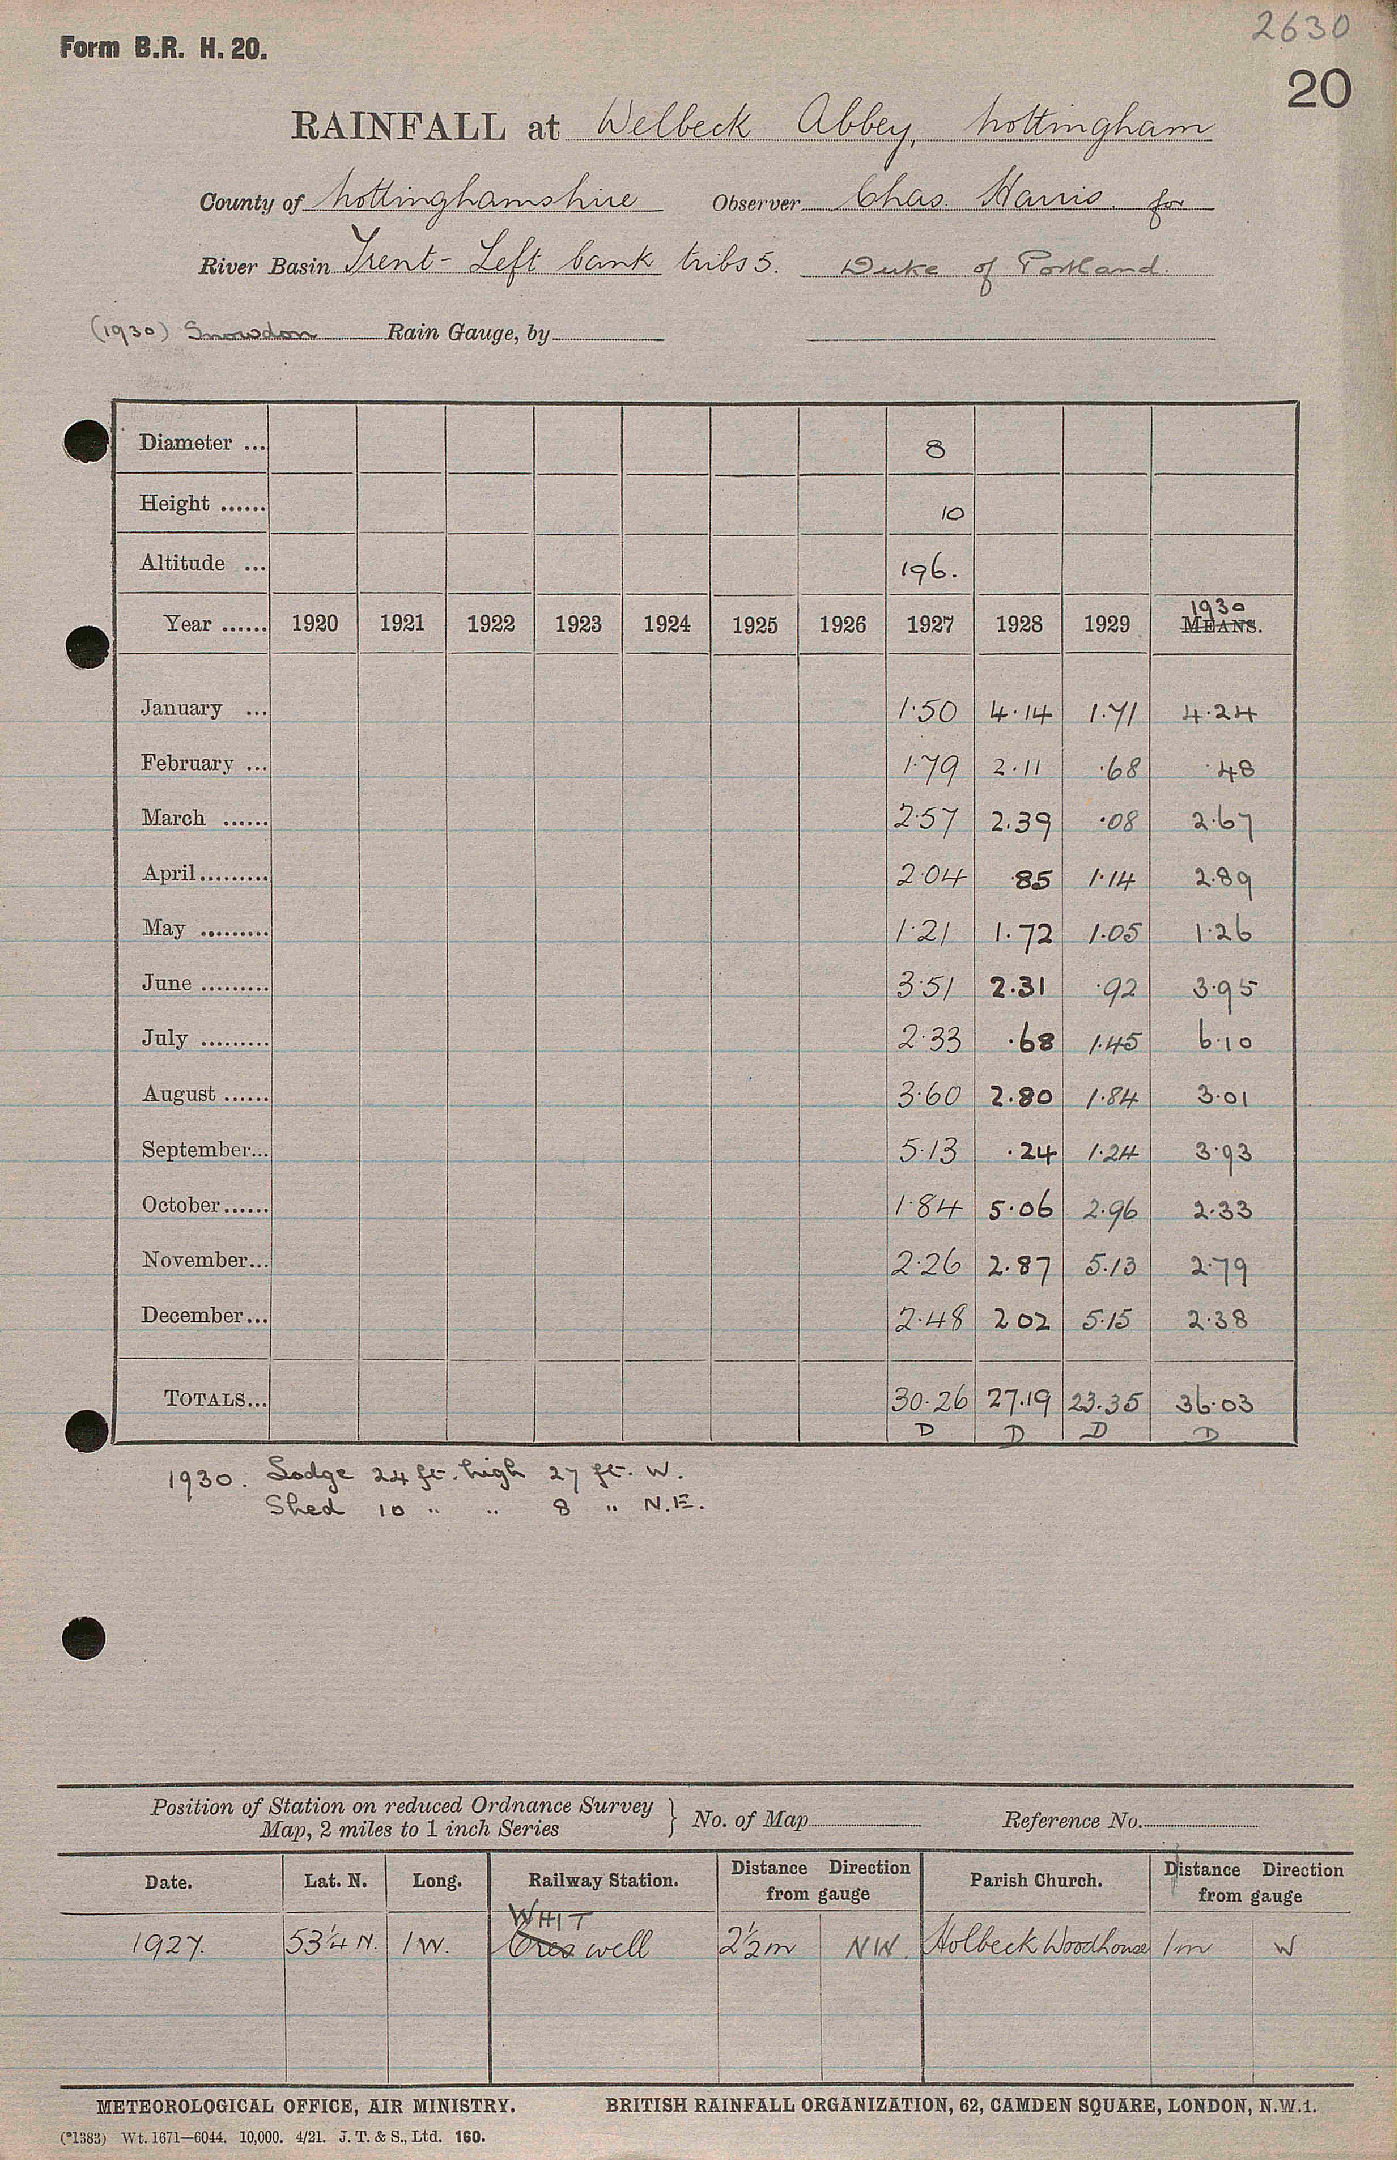 2630
Form B.R. H. 20.
20
RAINFALL at Welbeck Abbey, Nottingham
County of Nottinghamshire Observer Chas. Harris. for
River Basin Trent - Left bank tribs 5. Duke of Portland.
(1930) Snowdon Rain Gauge, by
Diameter ... 8
Height ...... 10
Altitude ... 196.
1930
Year ...... 1920 1921 1922 1923 1924 1925 1926 1927 1928 1929 MEANS.
January ... 1.50 4.14 1.71 4.24
February ... 1.79 2.11 .68 .48
March ...... 2.57 2.39 .08 2.67
April ......... 2.04 .85 1.14 2.89
May ......... 1.21 1.72 1.05 1.26
June ......... 3.51 2.31 .92 3.95
July ......... 2.33 .68 1.45 6.10
August ...... 3.60 2.80 1.84 3.01
September... 5.13 .24 1.24 3.93
October...... 1.84 5.06 2.96 2.33
November... 2.26 2.87 5.13 2.79
December... 2.48 2 02 5.15 2.38
TOTALS... 30.26 27.19 23.35 36.03
D D D D
1930. Lodge 24 ft. high 27 ft. W.
Shed 10 " " 8 " N.E.
Position of Station on reduced Ordnance Survey
Map, 2 miles to 1 inch Series } No. of Map Reference No.
Date. Lat. N. Long. Railway Station. Distance Direction from gauge Parish Church. Distance Direction from gauge
WHIT
1927. 53¼ N. 1 W. Creswell 2½ m NW. Holbeck Woodhouse 1 m W
METEOROLOGICAL OFFICE, AIR MINISTRY. BRITISH RAINFALL ORGANIZATION, 62, CAMDEN SQUARE, LONDON, N.W.1.
(*1383) Wt. 1671—6044. 10,000. 4/21. J. T. & S., Ltd. 160.